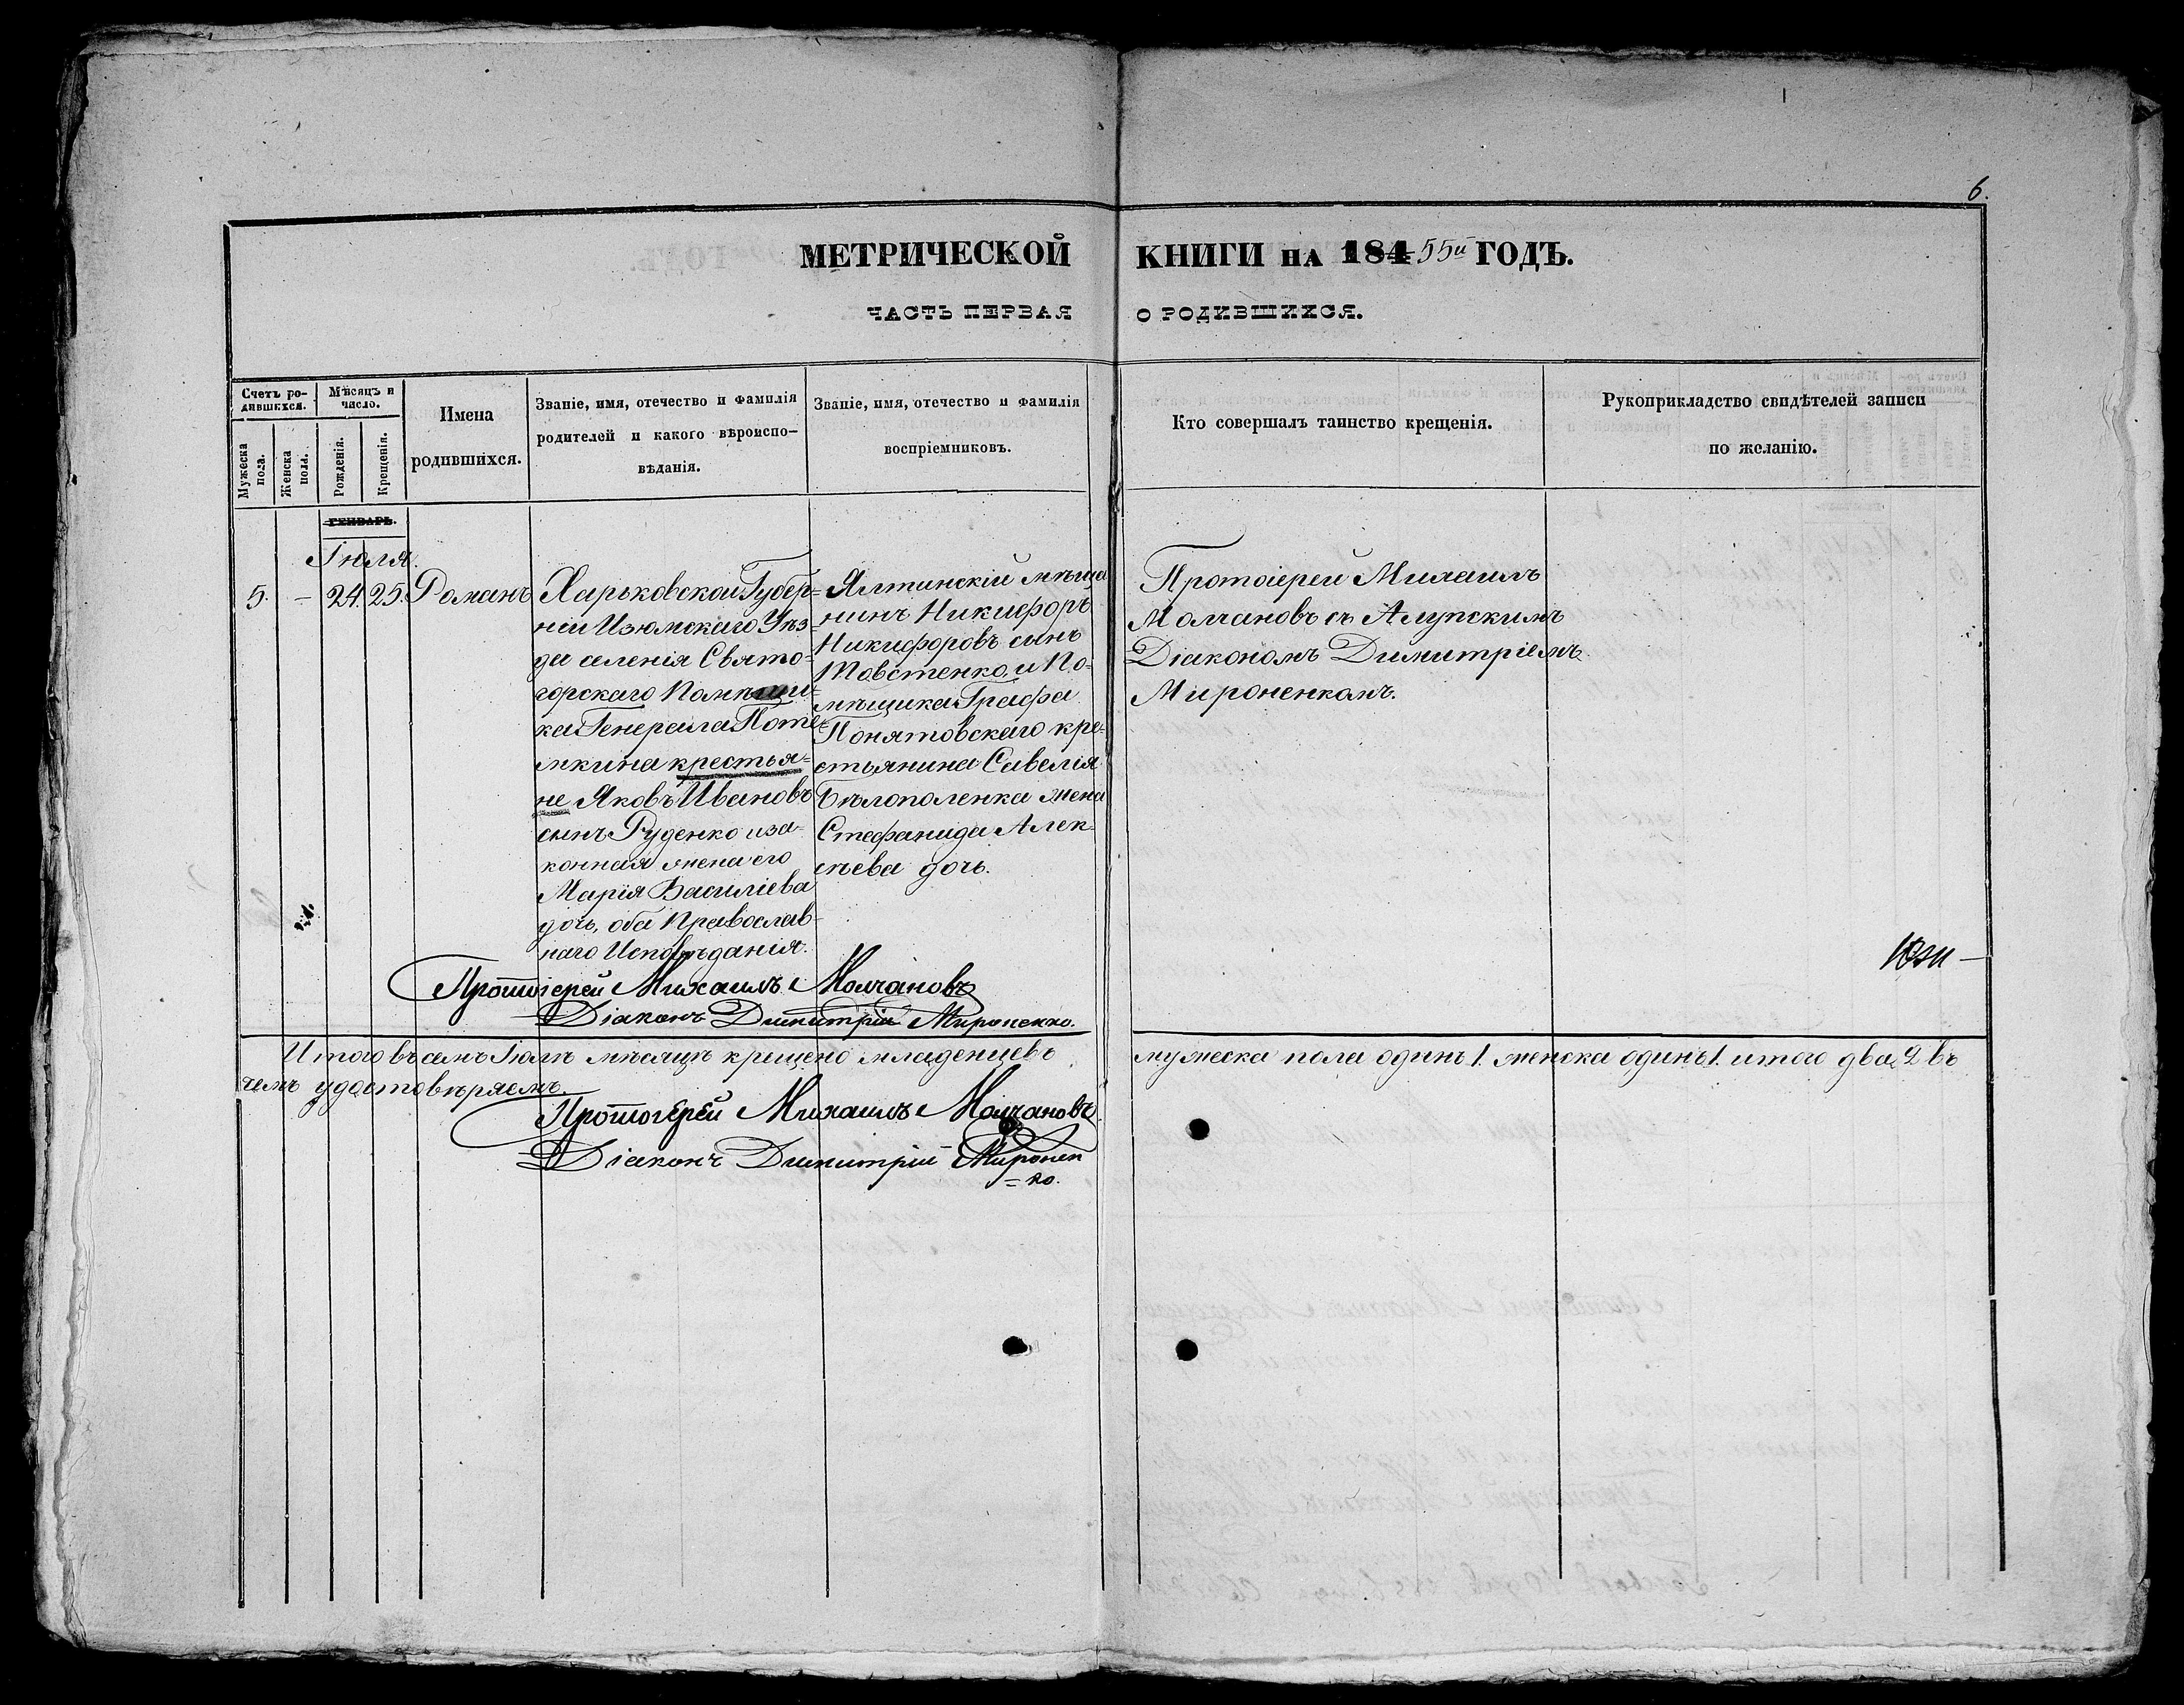 6.
МЕТРИЧЕСКОЙ КНИГИ НА 184 55й ГОДЪ.
ЧАСТЬ ПЕРВАЯ О РОДИВШИХСЯ.
Счетъ ро-
дившихся.
Мужеска
пола.
Женска
пола.
Мѣсяцъ и
число.
Рожденія.
Крещенія.
Имена
родившихся.
Званіе, имя, отечество и фамилія
родителей и какого вѣроиспо-
вѣданія.
Званіе, имя, отечество и фамилія
воспріемниковъ.
Кто совершалъ таинство крещенія.
Рукоприкладство свидѣтелей записи
по желанію.
ГЕНВАРЬ.
Іюля.
5. – 24. 25. Романъ
Харьковской Губер=
ніи Изюмскаго Уѣз=
да селенія Свято-
горскаго Помѣщи-
ка Генерала Поте=
мкина крестья=
не Яковъ Ивановъ
сынъ Руденко и за-
конная жена его
Марія Василіева
дочь, оба Православ-
наго Исповѣданія.
Ялтинскій мѣща
нинъ Никифоръ
Никифоровъ сынъ
Товстенко, и По-
мѣщика Графа
Понятовскаго кре-
стьянина Савелія
Бѣлополенка жена
Стефанида Алек-
сѣева дочь.
Протоіерей Михаилъ
Молчановъ съ Алупскимъ
Діакономъ Димитріемъ
Мироненкомъ.
Протоіерей Михаилъ Молчановъ
Діаконъ Димитрій Мироненко.
Итого въ семъ Іюлѣ мѣсяцѣ крещено младенцевъ мужеска пола одинъ 1. женска одинъ 1. итого два 2 въ
чемъ удостовѣряемъ.
Протоіерей Михаилъ Молчановъ
Діаконъ Димитрій Миронен
=ко.